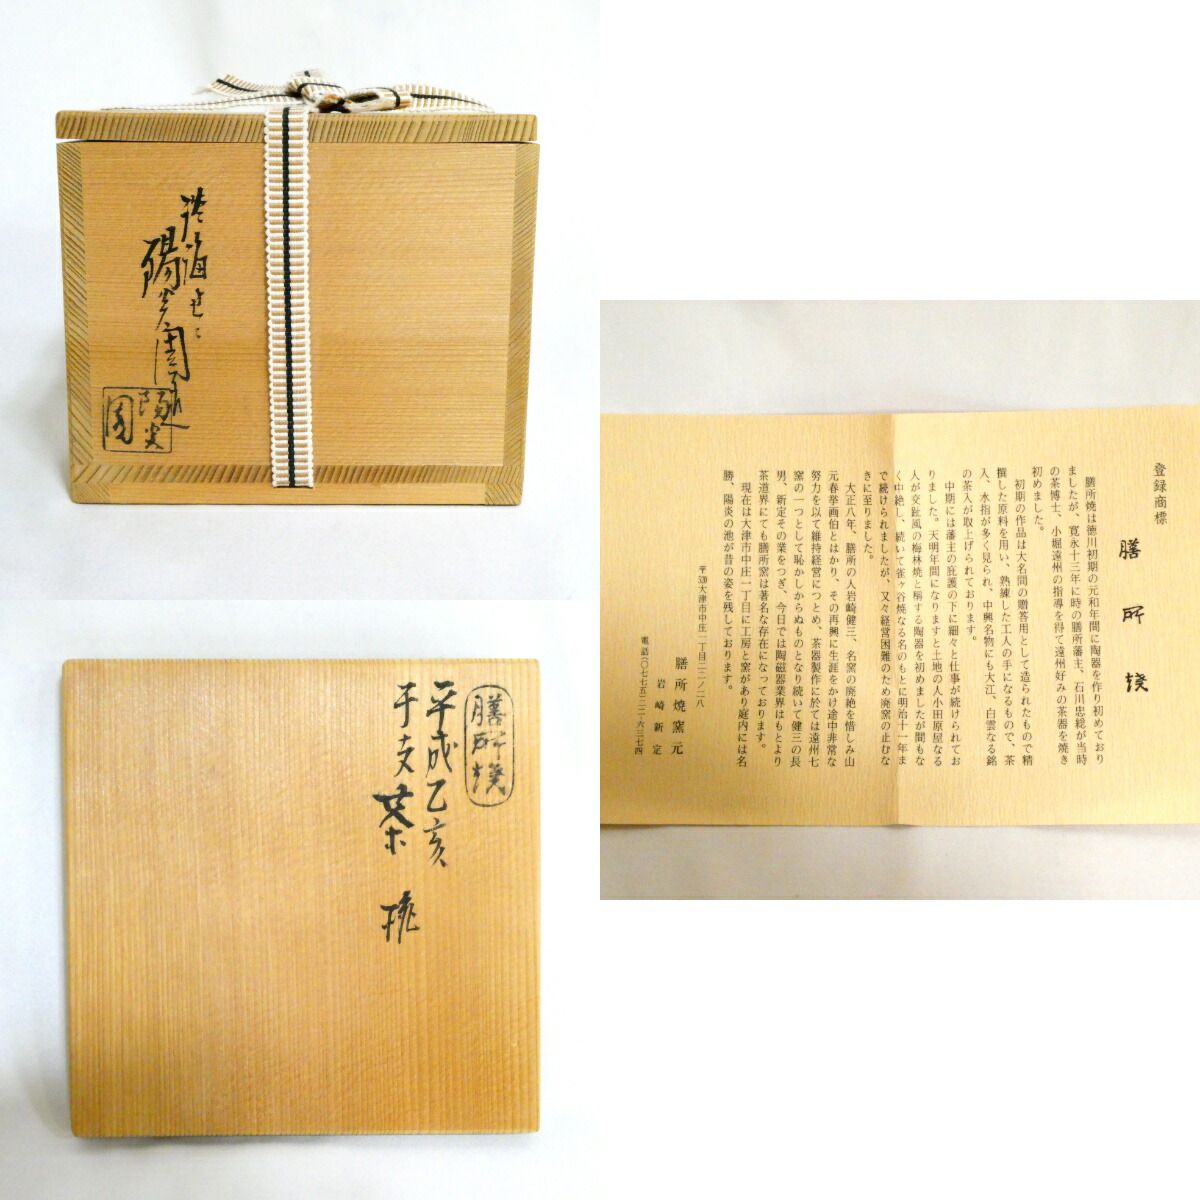 陽炎園
陽炎
園
膳所焼
平成乙亥
干支 茶碗
登録商標
膳所焼
膳所焼は徳川初期の元和年間に陶器を作り初めており
ましたが、寛永十三年に時の膳所藩主、石川忠総が当時
の茶博士、小堀遠州の指導を得て遠州好みの茶器を焼き
初めました。
初期の作品は大名間の贈答用として造られたもので精
撰した原料を用い、熟練した工人の手になるもので、茶
入、水指が多く見られ、中興名物にも大江、白雲なる銘
の茶入が取上げられております。
中期には藩主の庇護の下に細々と仕事が続けられてお
りました。天明年間になりますと土地の人小田原屋なる
人が交趾風の梅林焼と称する陶器を初めましたが間もな
く中絶し、続いて雀ヶ谷焼なる名のもとに明治十一年ま
で続けられましたが、又々経営困難のため廃窯の止むな
きに至りました。
大正八年、膳所の人岩崎健三、名窯の廃絶を惜しみ山
元春挙画伯とはかり、その再興に生涯をかけ途中非常な
努力を以て維持経営につとめ、茶器製作に於ては遠州七
窯の一つとして恥かしからぬものとなり続いて健三の長
男、新定その業をつぎ、今日では陶磁器業界はもとより
茶道界にても膳所窯は著名な存在になっております。
現在は大津市中庄一丁目に工房と窯があり庭内には名
勝、陽炎の池が昔の姿を残しております。
膳所焼窯元
岩崎新定
〒520大津市中庄一丁目二二ノ二八
電話〇七七五-二二-六三七四